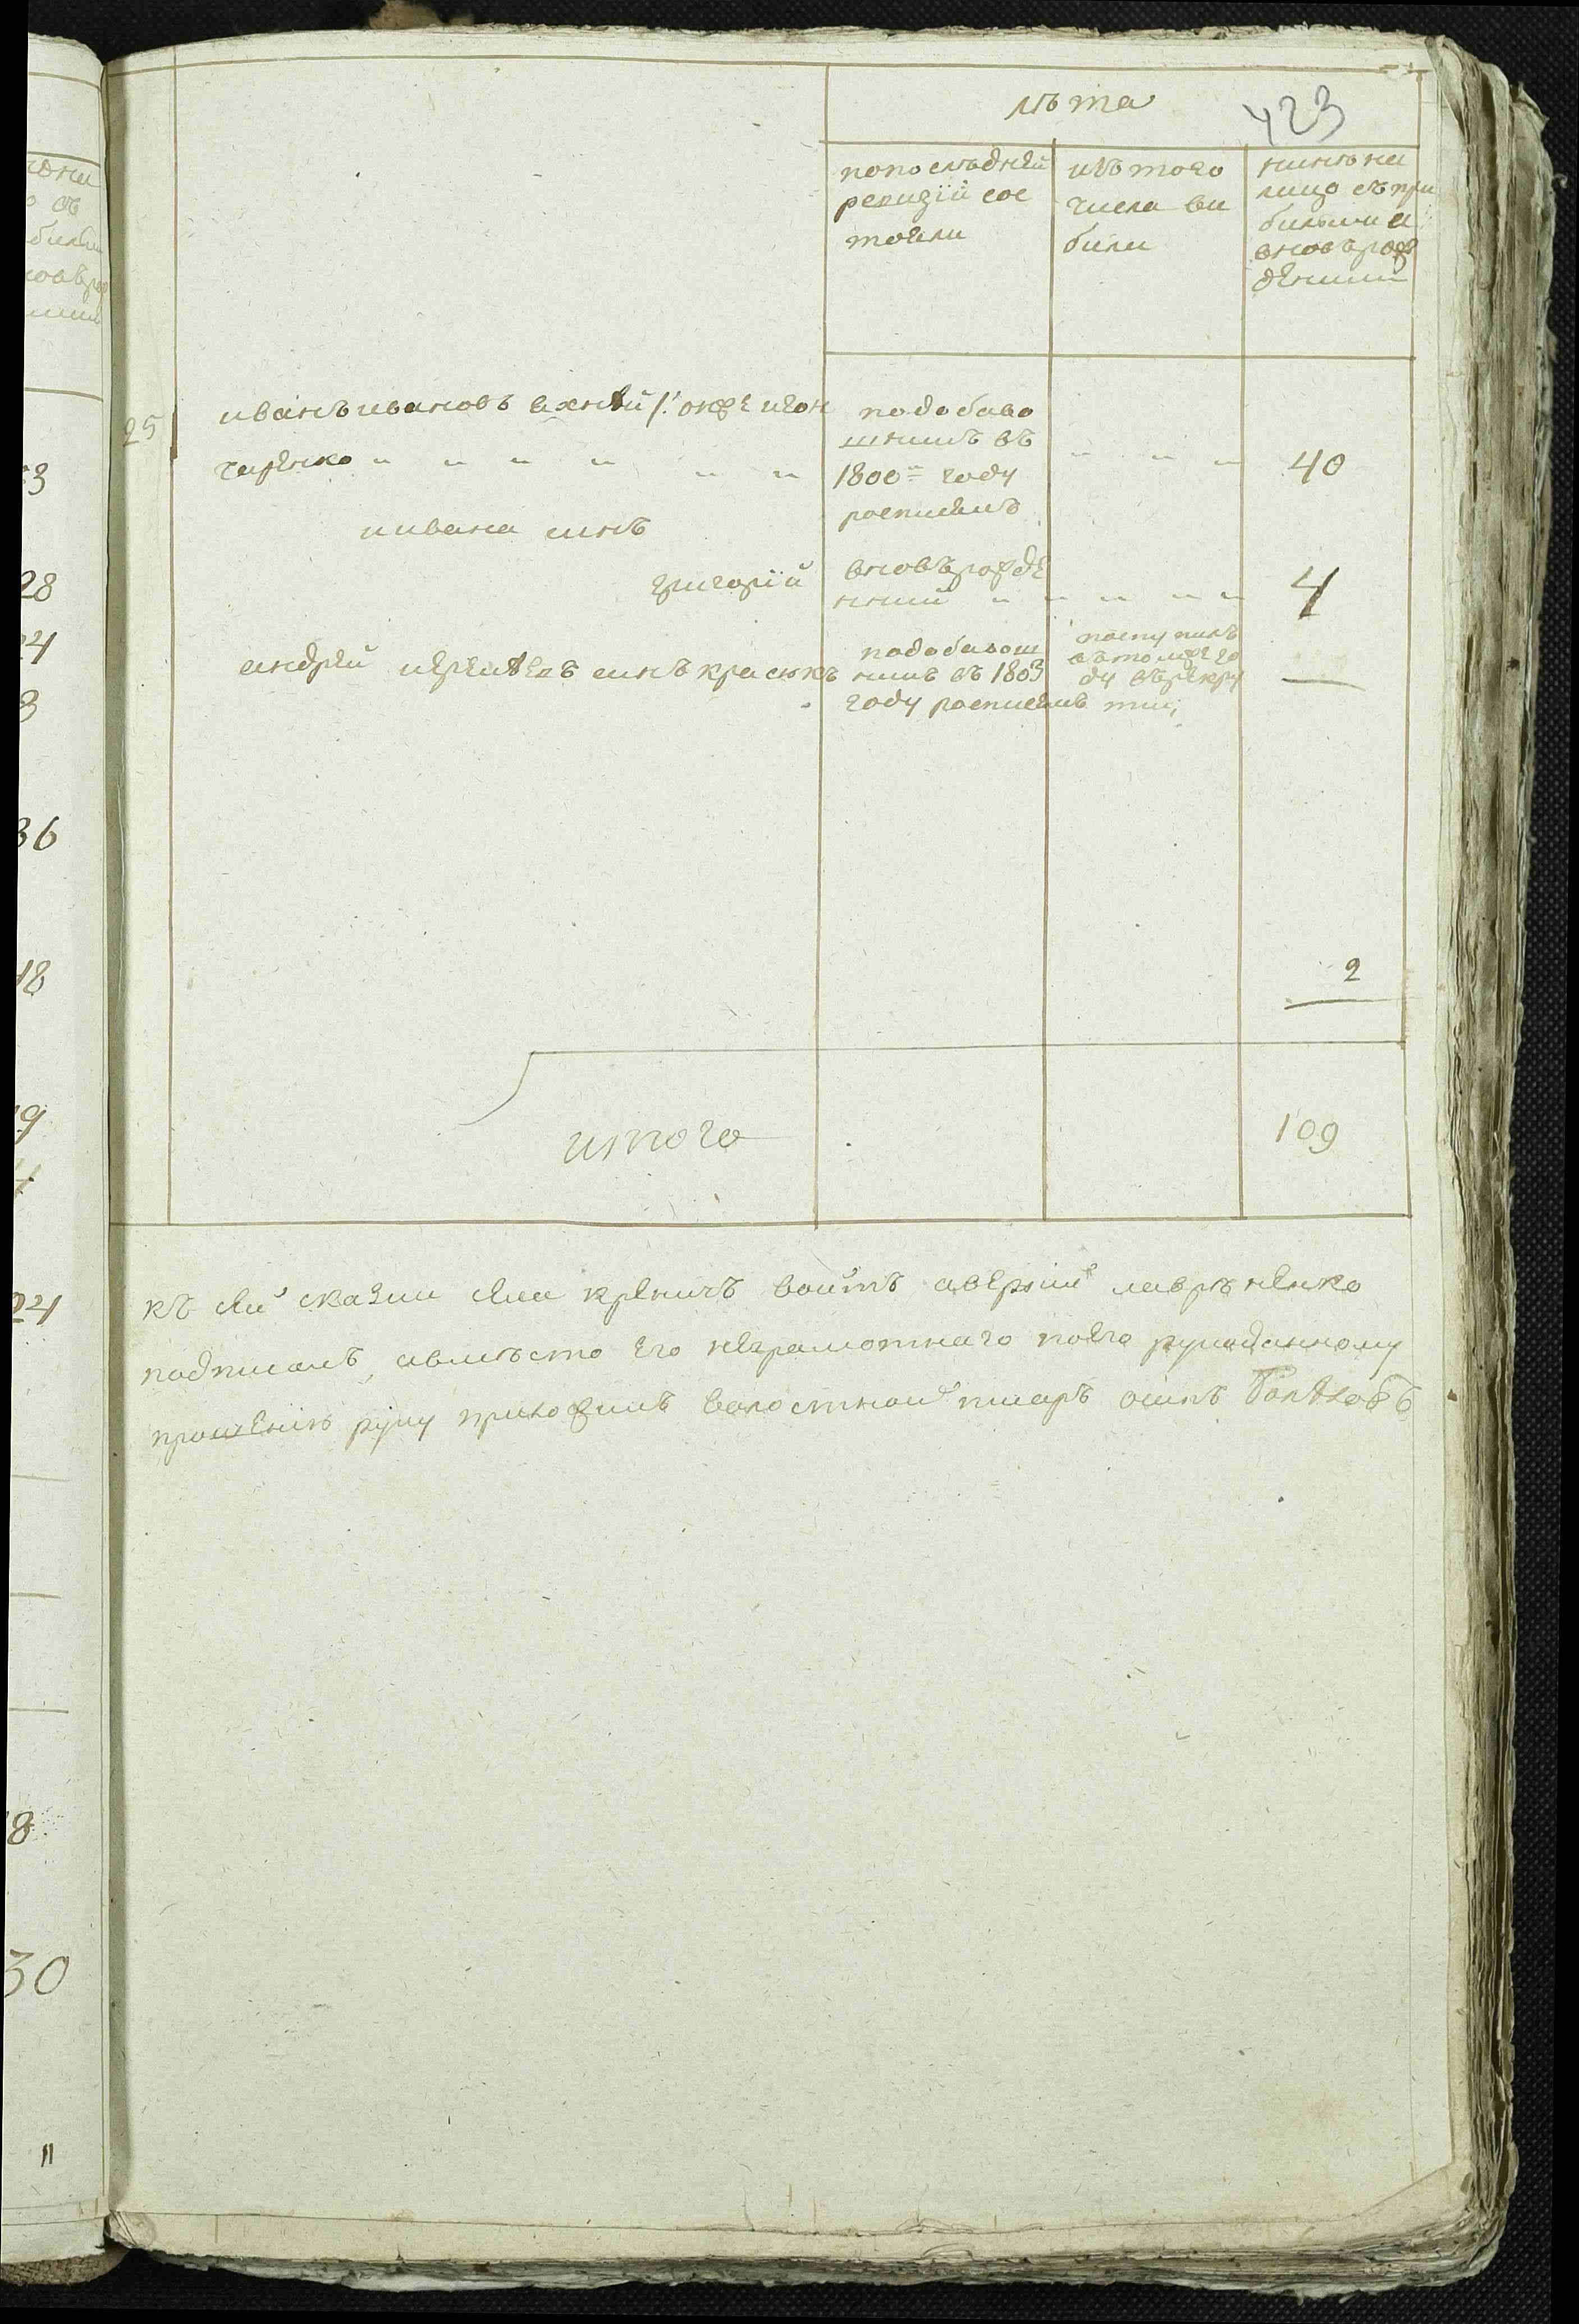 лѣта 423
по последней ревизiи сос тояли
изъ того числа вы были
нинѣ на лицо съ при былыми и вновь рож денними
25 иванъ ивановъ онже
чаренко " " " " " "
по добаво шнимъ въ 1800м году росписямъ
" " " 40
ивана синъ
григорiй
вновь рожде нний " " " " "
4
андрей синъ красюкъ
по добавош нимъ въ 1803 году росписямъ
поступилъ въ томже го ду въ рекру ти
—
2
итого 109
къ сей сказки села креничъ войтъ аверкии лаврѣненко
подписалъ, а вмѣсто его неграмотнаго по его рукоданному
прошению руку приложилъ волостной писаръ осипъ
3
28
24
3
36
18
9
4
24
8
30
11